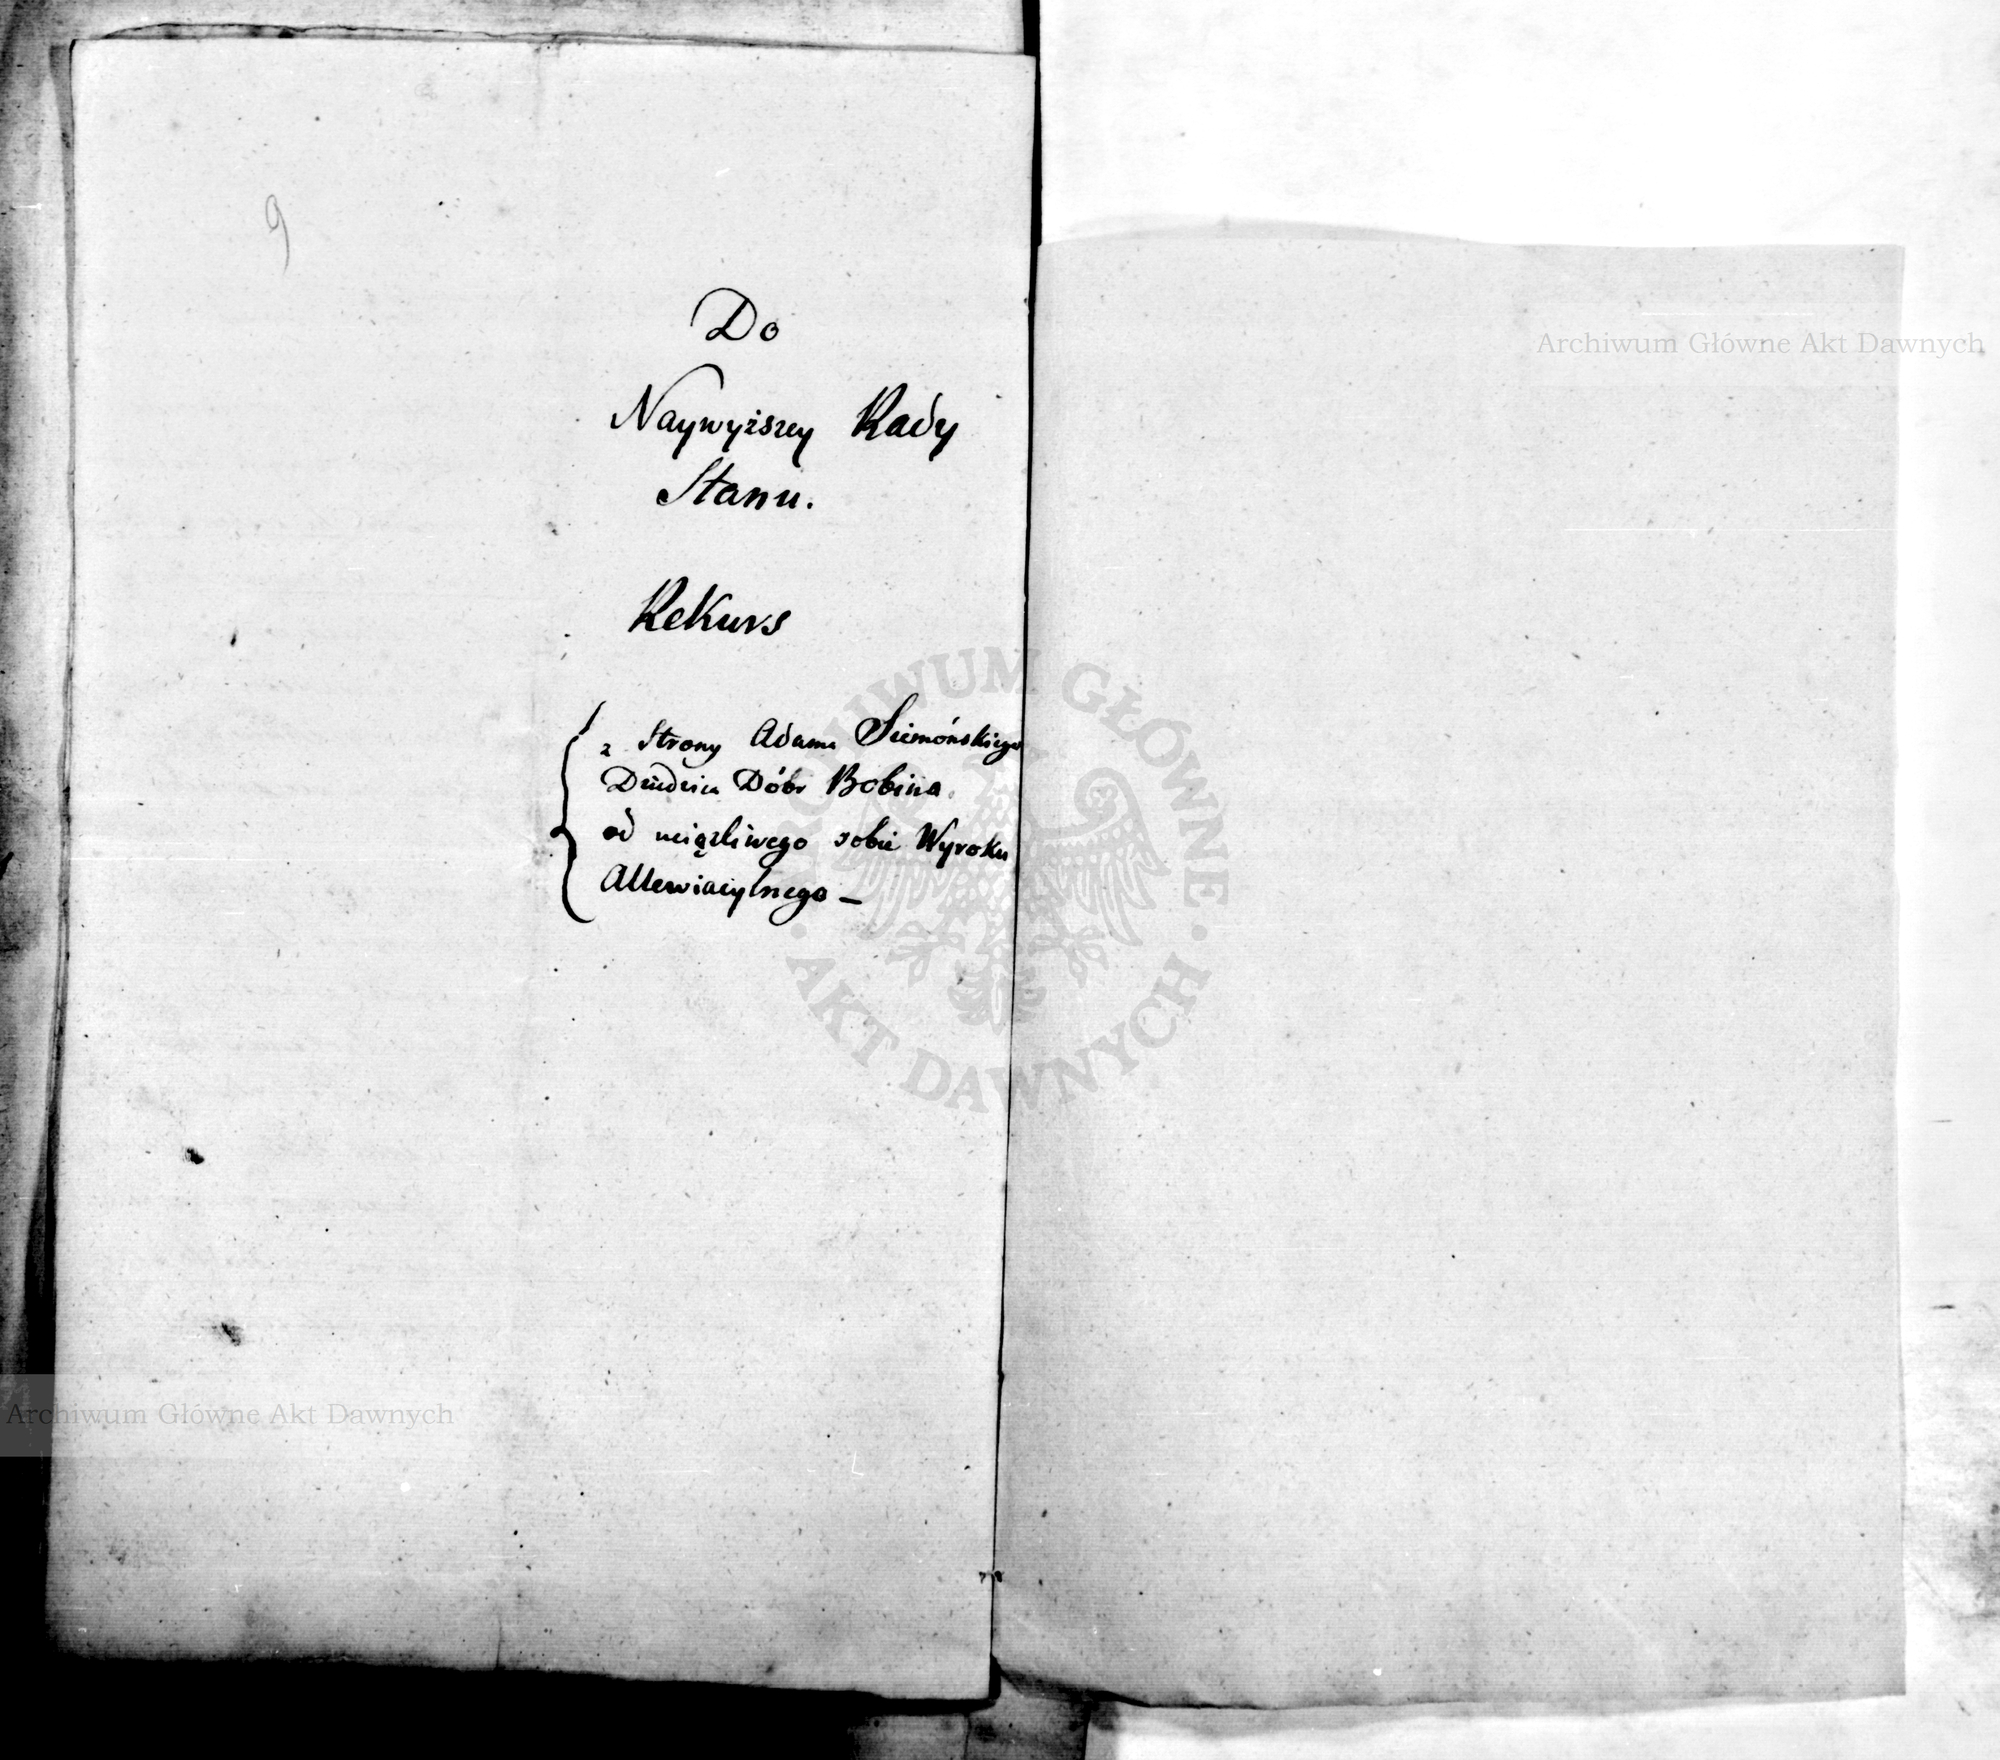 9
Do
Naywyższey Rady
Stanu.
Rekurs
z Strony Adama Siemóńskiego
Dziedzica Dóbr Bobina
od uciążliwego sobie Wyroku
Allewiacylnego –
ARCHIWUM GŁÓWNE
· AKT DAWNYCH ·
Archiwum Główne Akt Dawnych
Archiwum Główne Akt Dawnych